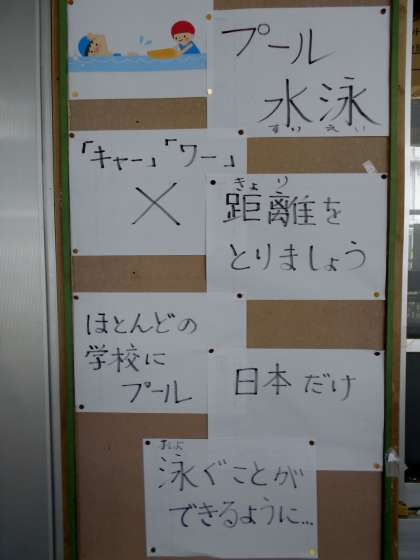 プール
水泳
すい えい
「キャー」「ワー」
×
きょ り
距離を
とりましょう
ほとんどの
学校に
プール
日本だけ
およ
泳ぐことが
できるように…